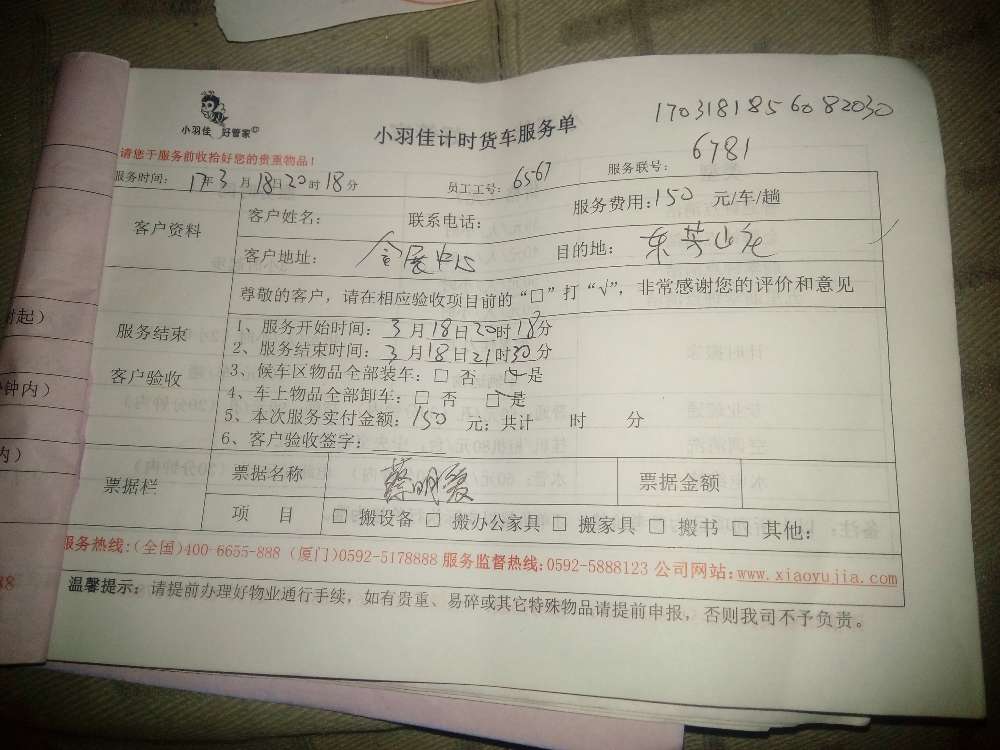 小羽佳 好管家
小羽佳计时货车服务单
1703181856082030
请您于服务前收拾好您的贵重物品！
服务时间：17年3月18日20时18分
员工工号：6567
服务联号：6781
客户资料
客户姓名：
联系电话：
服务费用：150 元/车/趟
客户地址：会展中心
目的地：东芳山庄
尊敬的客户，请在相应验收项目前的“□”打“√”，非常感谢您的评价和意见
服务结束
客户验收
1、服务开始时间：3月18日20时18分
2、服务结束时间：3月18日21时30分
3、候车区物品全部装车：□ 否 □ 是
4、车上物品全部卸车：□ 否 □ 是
5、本次服务实付金额：150 元；共计 时 分
6、客户验收签字：
票据栏
票据名称
票据金额
项 目
□ 搬设备 □ 搬办公家具 □ 搬家具 □ 搬书 □ 其他：
服务热线：(全国)400-6655-888 (厦门)0592-5178888 服务监督热线：0592-5888123 公司网站：www.xiaoyujia.com
温馨提示：请提前办理好物业通行手续，如有贵重、易碎或其它特殊物品请提前申报，否则我司不予负责。
时起）
钟内）
内）